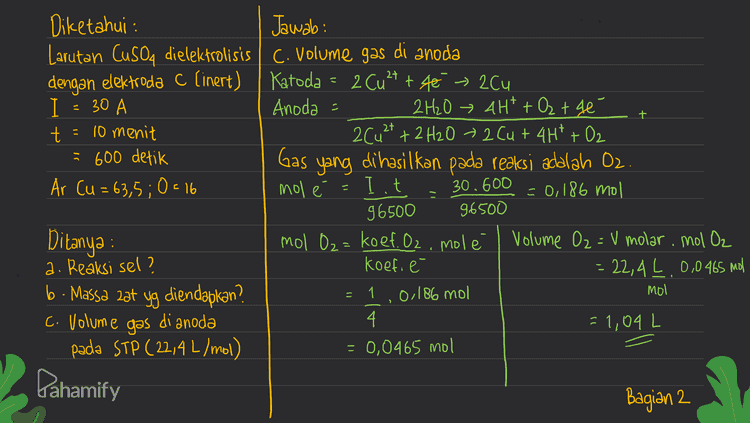 Diketahui :
Larutan CuSO4 dielektrolisis
dengan elektroda C (inert)
I = 30 A
t = 10 menit
= 600 detik
Ar Cu = 63,5 ; O = 16
Ditanya :
a. Reaksi sel ?
b. Massa zat yg diendapkan?
c. Volume gas di anoda
pada STP (22,4 L/mol)
Jawab :
C. Volume gas di anoda
Katoda = 2 Cu²⁺ + 4e⁻ → 2Cu
Anoda = 2H₂O → 4H⁺ + O₂ + 4e⁻ +
2Cu²⁺ + 2H₂O → 2Cu + 4H⁺ + O₂
Gas yang dihasilkan pada reaksi adalah O₂.
mol e⁻ = I . t = 30.600 = 0,186 mol
96500 96500
mol O₂ = koef. O₂ . mol e⁻
koef. e⁻
= 1 . 0,186 mol
4
= 0,0465 mol
Volume O₂ = V molar . mol O₂
= 22,4 L . 0,0465 mol
mol
= 1,04 L
Pahamify
Bagian 2